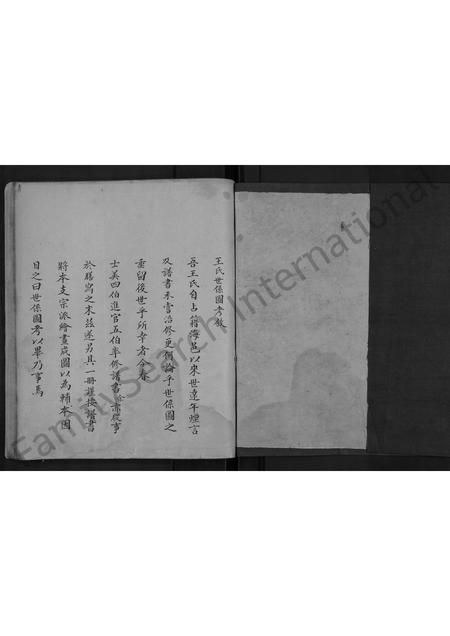 王氏世係圖考敘
吾王氏自占籍海邑以來世遠年煙言
及譜書未嘗浩修更何論乎世係圖之
垂留後世乎所幸者今春
士美四伯進官五伯半修譜書餘肅啟事
於謄寫之末茲遂另具一冊謹按譜書
將本支宗派繪畫成圖以為輔本因
目之曰世係圖考以畢乃事焉
FamilySearch International